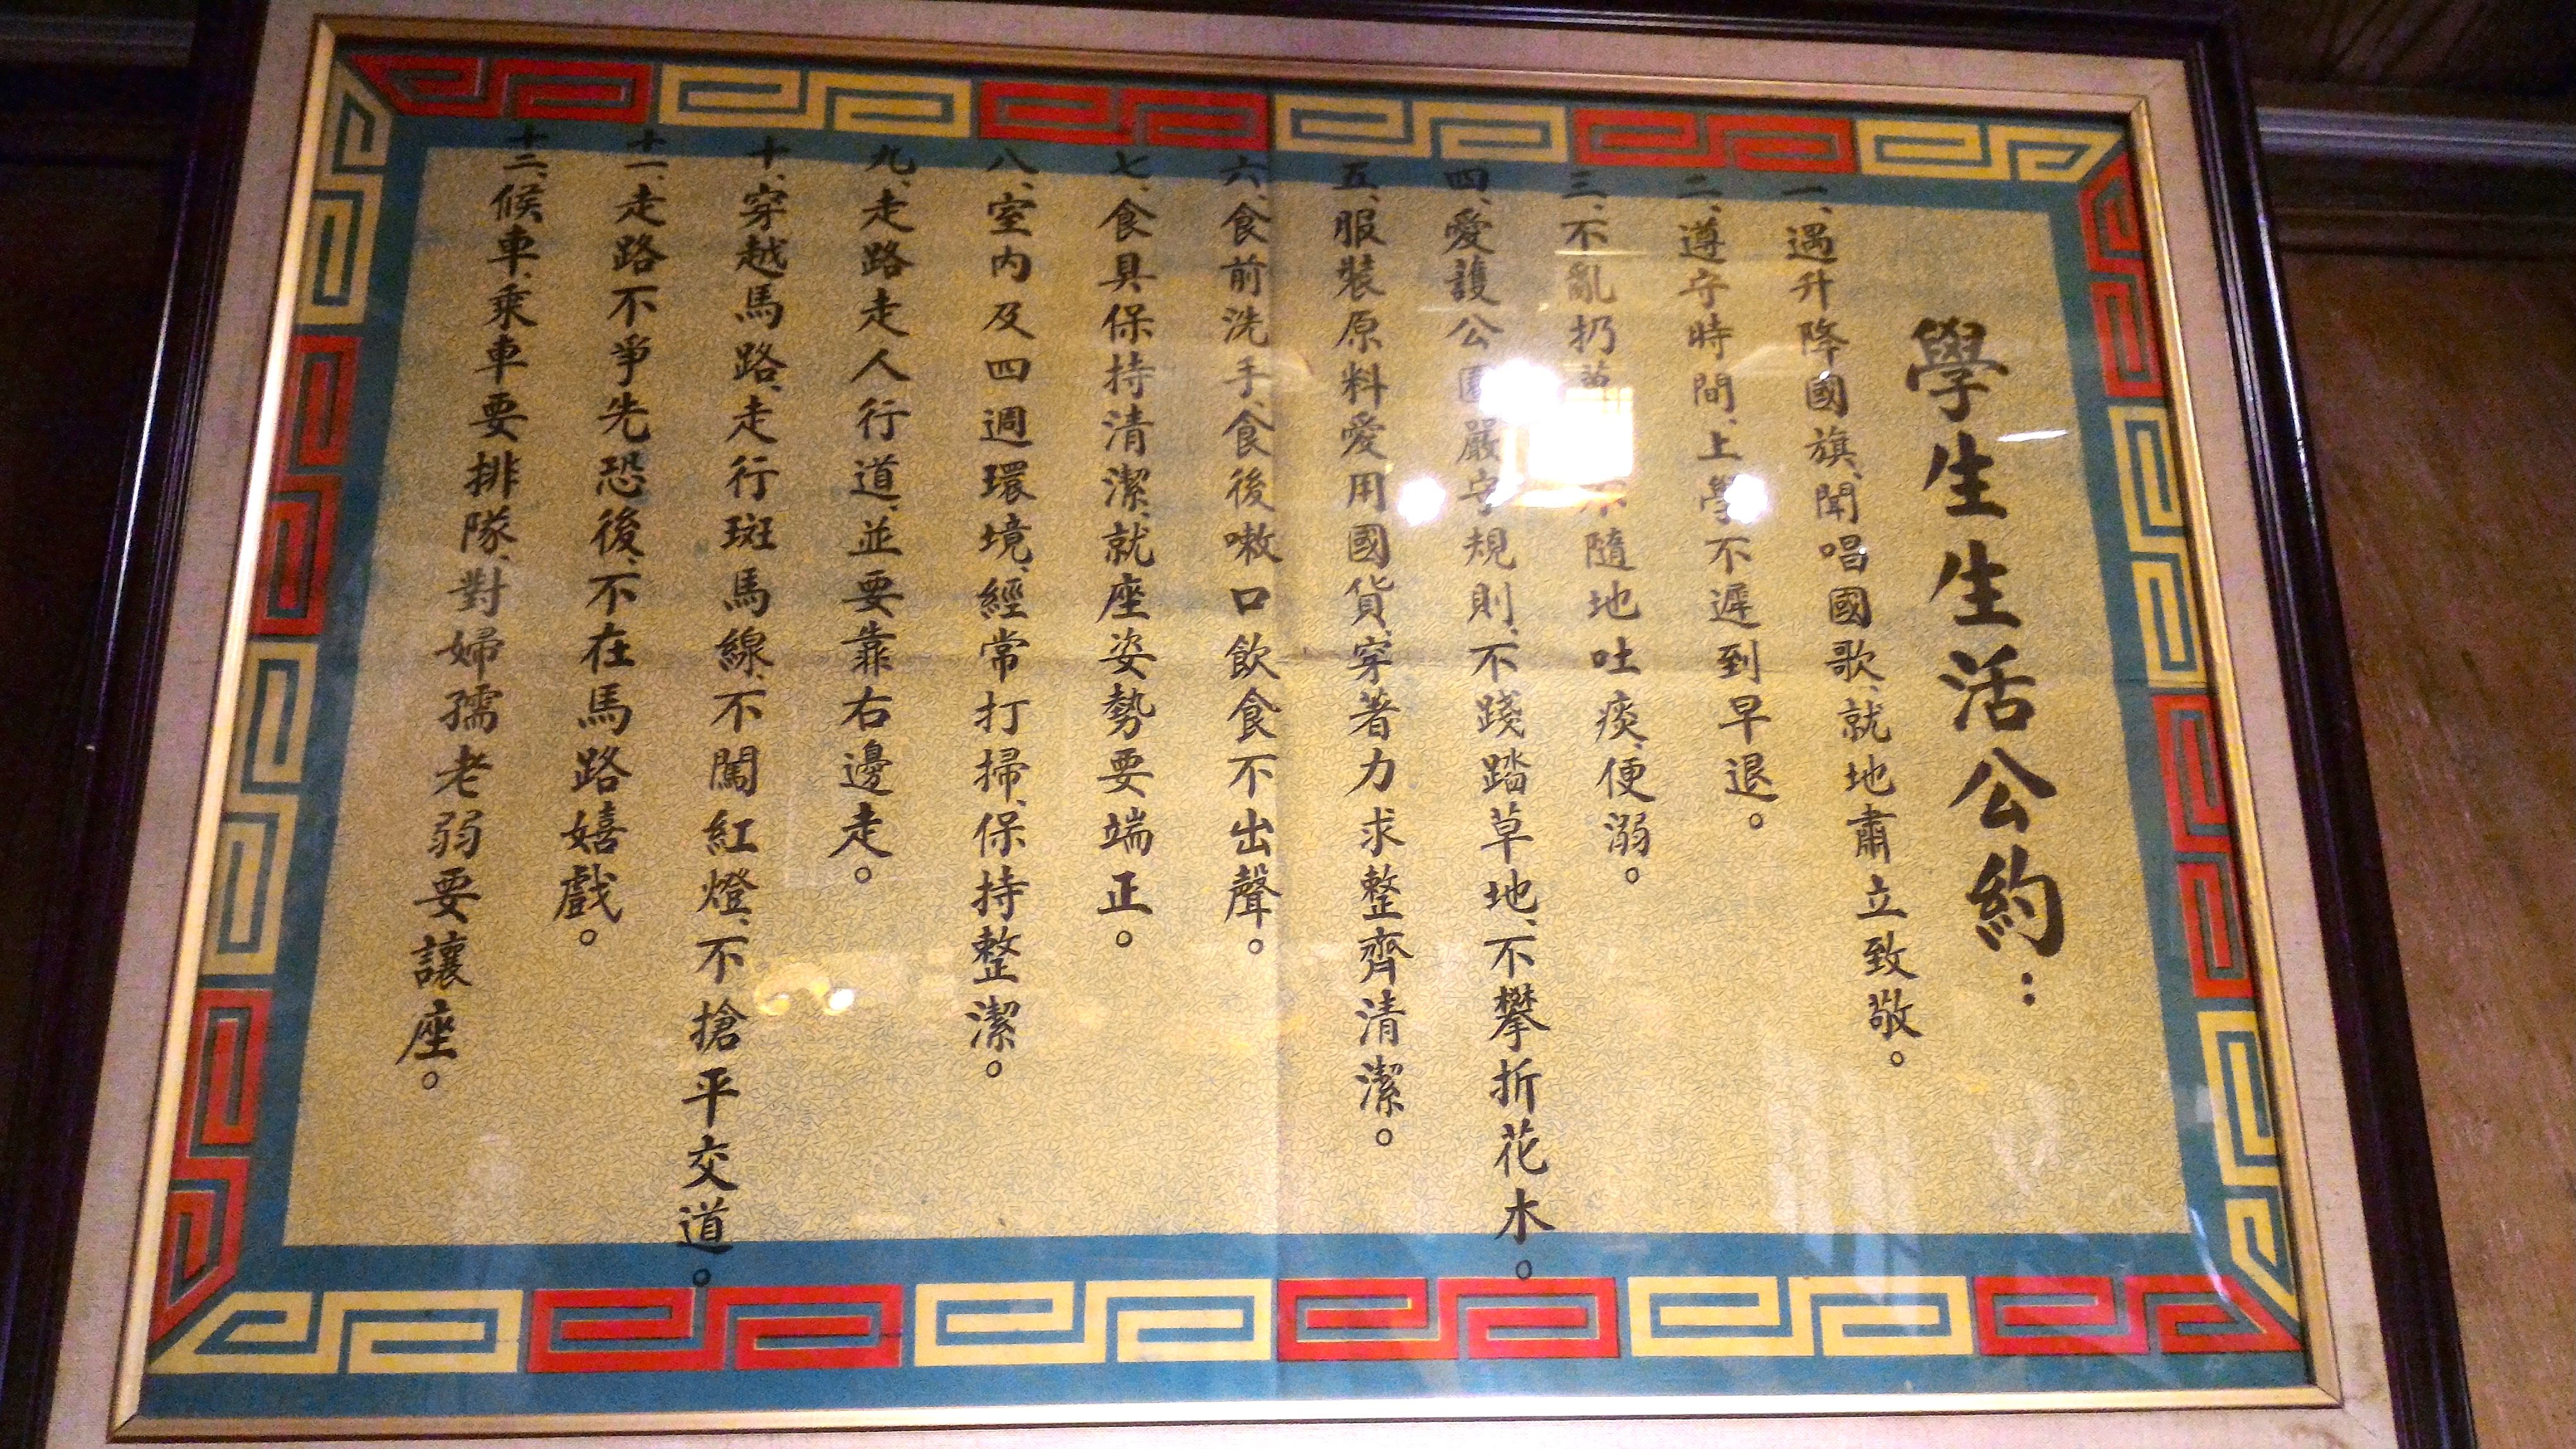 學生生活公約：
一、遇升降國旗、聞唱國歌、就地肅立致敬。
二、遵守時間、上學不遲到早退。
三、不亂扔 隨地吐痰、便溺。
四、愛護公園嚴守規則、不踐踏草地、不攀折花木。
五、服裝原料愛用國貨、穿著力求整齊清潔。
六、食前洗手、食後嗽口飲食不出聲。
七、食具保持清潔、就座姿勢要端正。
八、室内及四週環境、經常打掃、保持整潔。
九、走路走人行道、並要靠右邊走。
十、穿越馬路、走行斑馬線、不闖紅燈、不搶平交道。
十一、走路不爭先恐後、不在馬路嬉戲。
十二、候車、乘車要排隊、對婦孺老弱要讓座。